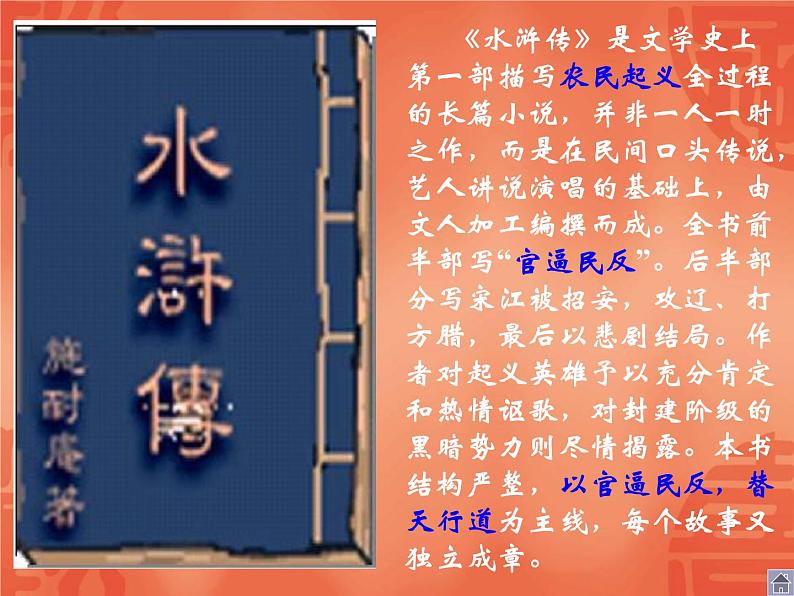 水
滸
傳
施耐庵著
《水浒传》是文学史上
第一部描写农民起义全过程
的长篇小说，并非一人一时
之作，而是在民间口头传说，
艺人讲说演唱的基础上，由
文人加工编撰而成。全书前
半部写“官逼民反”。后半部
分写宋江被招安，攻辽、打
方腊，最后以悲剧结局。作
者对起义英雄予以充分肯定
和热情讴歌，对封建阶级的
黑暗势力则尽情揭露。本书
结构严整，以官逼民反，替
天行道为主线，每个故事又
独立成章。